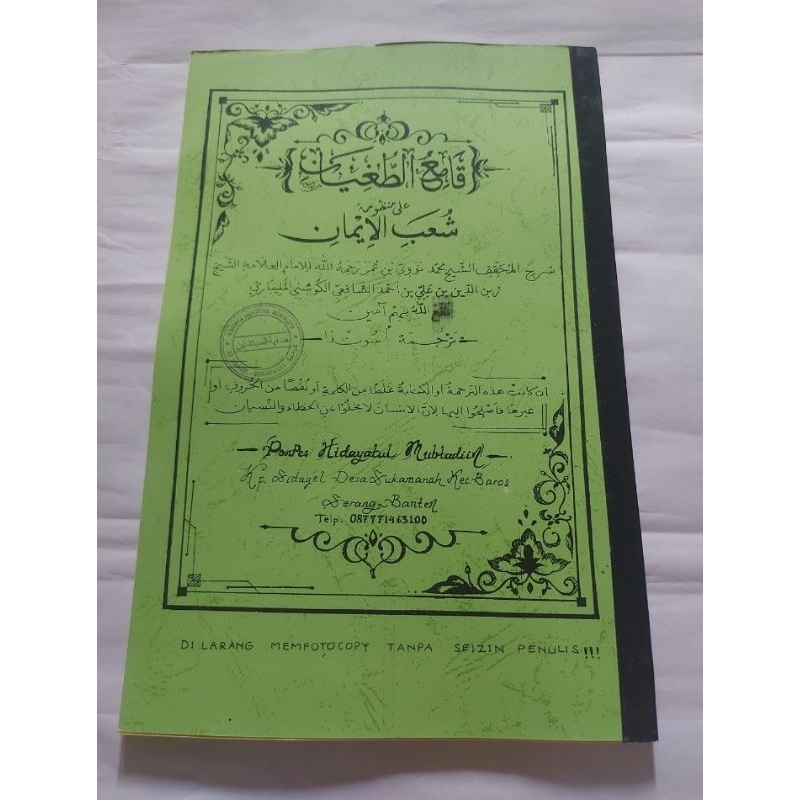 قَامِعُ الطُّغْيَانِ
على منظومة
شُعَبِ الْإِيْمَانِ
شرح المحقق الشيخ محمد نووي بن عمر رحمه الله للامام العلامة الشيخ
زين الدين بن علي بن احمد الشافعي الكوشني المليباري
الله بهم آمين
ترجمة سوندا
ان كانت هذه الترجمة او الكتابة غلطا من الكلمة او نقصا من الحروف او
غيرها فاصلحوا اليها لان الانسان لا يخلوا عن الخطاء والنسيان
PonPes Hidayatul Mubtadiin
Kp. Sidagel Desa Sukamanah Kec. Baros
Serang - Banten
Telp. 087771463100
DI LARANG MEMFOTOCOPY TANPA SEIZIN PENULIS!!!